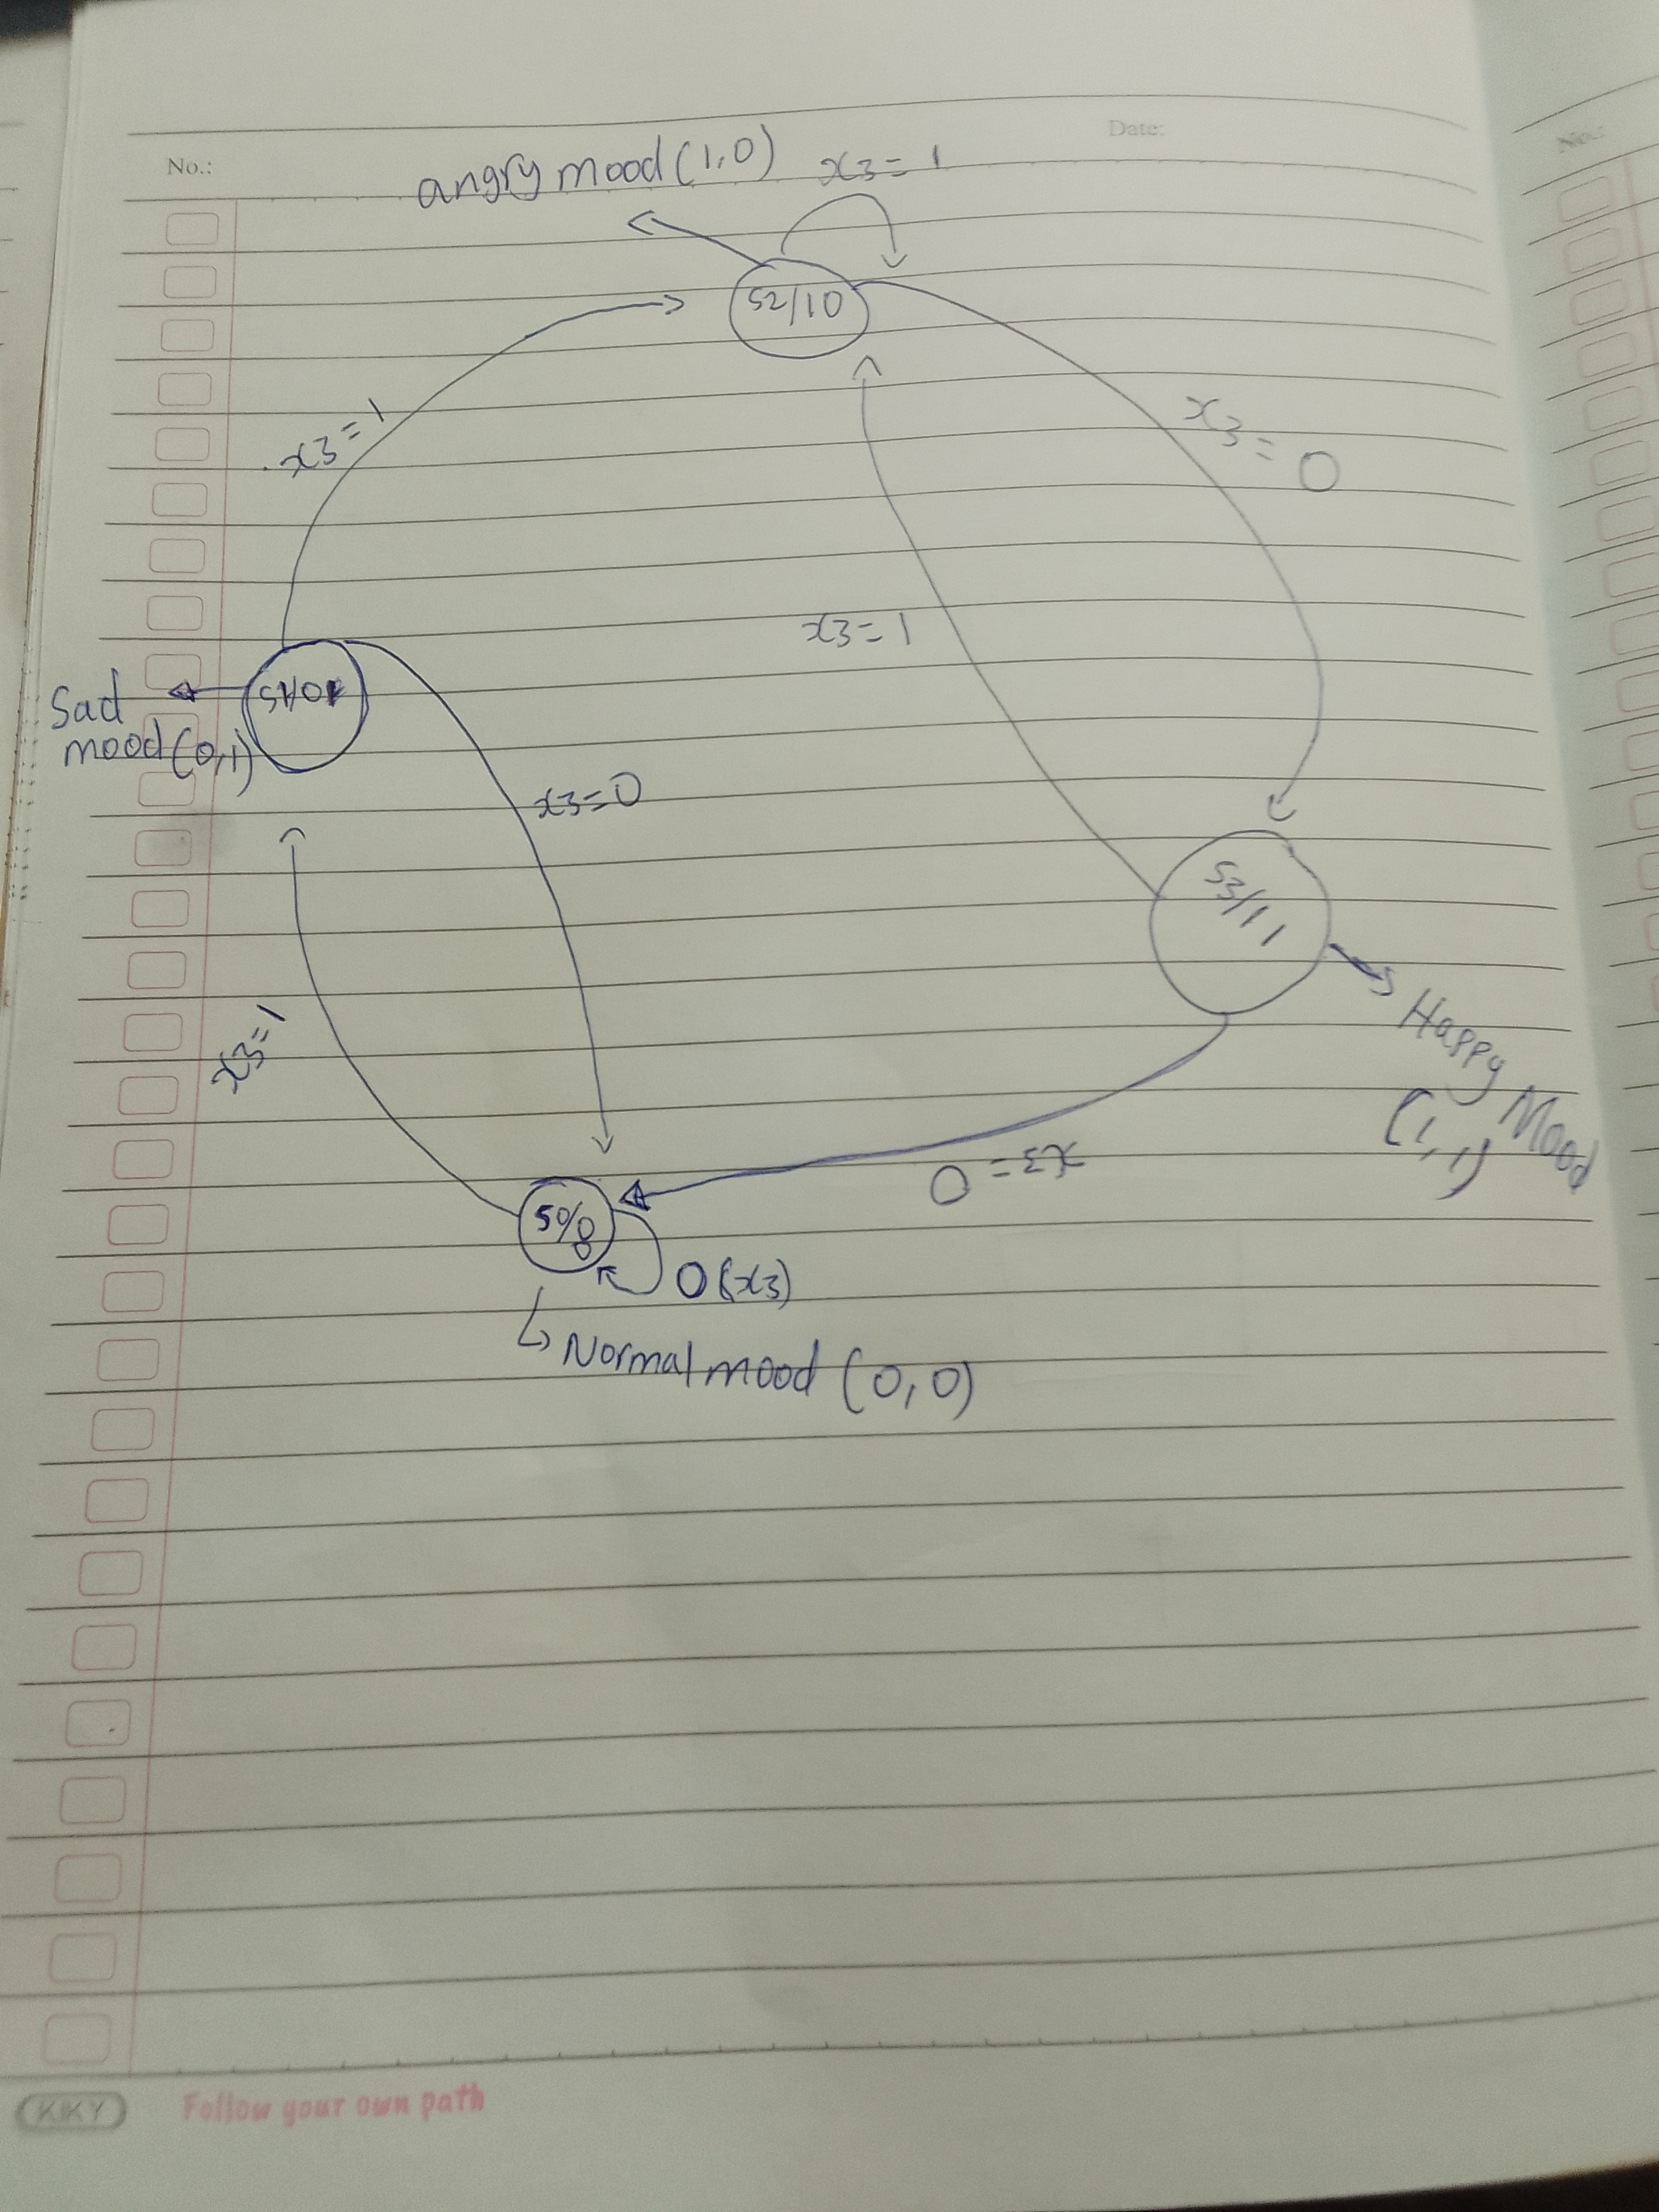 No.:
Date:
No.:
angry mood (1,0)
x3 = 1
S2/10
x3 = 1
x3 = 0
x3 = 1
Sad
mood (0,1)
x3=0
S3/11
x3=1
Happy Mood
(1,1)
x3 = 0
0(x3)
Normal mood (0,0)
KIKY
Follow your own path